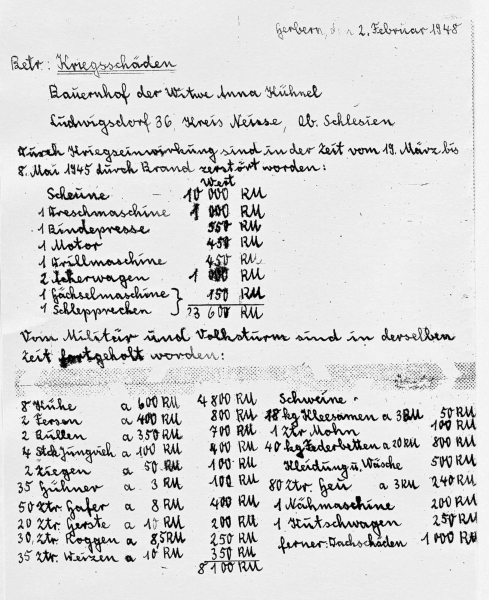 Herbern, den 2. Februar 1948
Betr: Kriegsschäden
Bauernhof der Witwe Anna Kühnel
Ludwigsdorf 36, Kreis Neisse, Ob. Schlesien
Durch Kriegseinwirkung sind in der Zeit vom 19. März bis
8. Mai 1945 durch Brand zerstört worden:
Wert
Scheune 10 000 RM
1 Dreschmaschine 1 000 RM
1 Bindepresse 550 RM
1 Motor 450 RM
1 Drillmaschine 450 RM
2 Ackerwagen 1 000 RM
1 Häckselmaschine
1 Schlepprechen } 150 RM
13 600 RM
Vom Militär und Volksturm sind in derselben
Zeit fortgeholt worden:
8 Kühe a 600 RM 4 800 RM
2 Fersen a 400 RM 800 RM
2 Bullen a 350 RM 700 RM
4 Stck Jungvieh a 100 RM 400 RM
2 Ziegen a 50 RM 100 RM
35 Hühner a 3 RM 100 RM
50 Ztr. Hafer a 8 RM 400 RM
20 Ztr. Gerste a 10 RM 200 RM
30 Ztr. Roggen a 8,5 RM 250 RM
35 Ztr. Weizen a 10 RM 350 RM
8 100 RM
Schweine
18 kg Kleesamen a 3 RM 50 RM
1 Ztr. Mohn 100 RM
40 kg Federbetten a 20 RM 800 RM
Kleidung u. Wäsche 500 RM
80 Ztr. Heu a 3 RM 240 RM
1 Nähmaschine 200 RM
1 Kutschwagen 250 RM
ferner: Dachschäden 1 000 RM